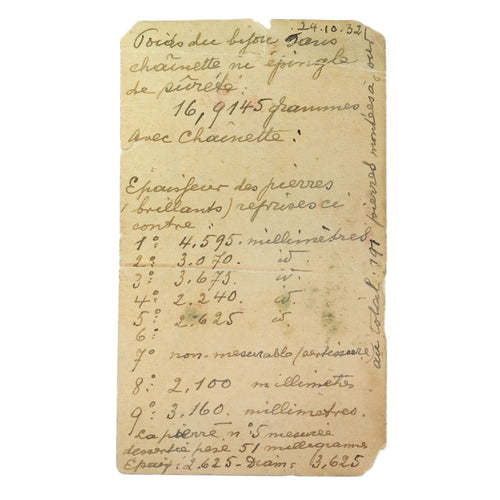 24.10.32
Poids du bijou sans
chaînette ni épingle
de sûreté:
16,9145 grammes
avec chaînette:
Epaisseur des pierres
(brillants) reprises ci
contre:
1º: 4.595. millimètres
2º: 3.070. id.
3º: 3.673. id.
4º: 2.240. id.
5º: 2.625 id.
6º:
7º non-mesurable (sertissure
8º: 2,100 millimètres
9º: 3.160. millimètres.
La pierre nº 5 mesurée
dessertie pese 51 milligrammes
Epais: 2.625 - Diam: 3,625
au total: 191 pierres montées à jour